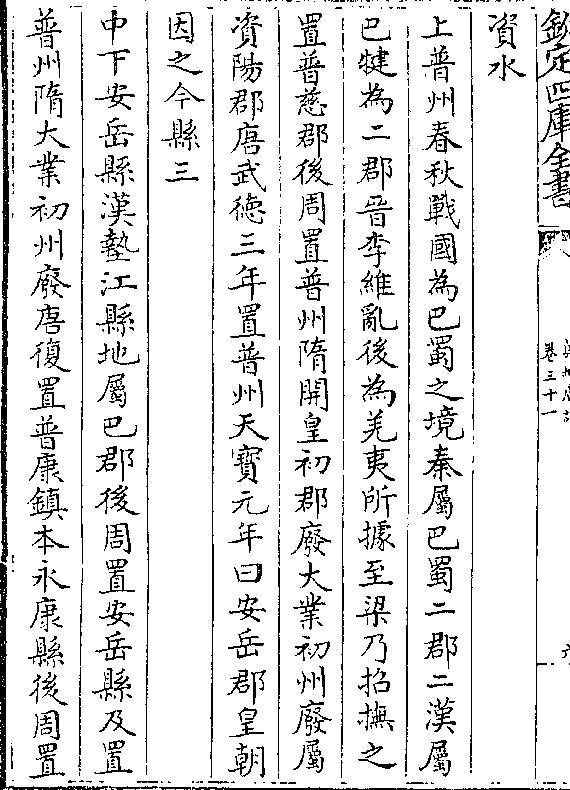 欽定四庫全書
卷三十一
資水
上普州春秋戰國為巴蜀之境秦屬巴蜀二郡二漢屬
巴犍為二郡晉李維亂後為羌夷所據至梁乃招撫之
置普慈郡後周置普州隋開皇初郡廢大業初州廢屬
資陽郡唐武徳三年置普州天寶元年曰安岳郡皇朝
因之今縣三
中下安岳縣漢墊江縣地屬巴郡後周置安岳縣及置
普州隋大業初州廢唐復置普康鎮本永康縣後周置